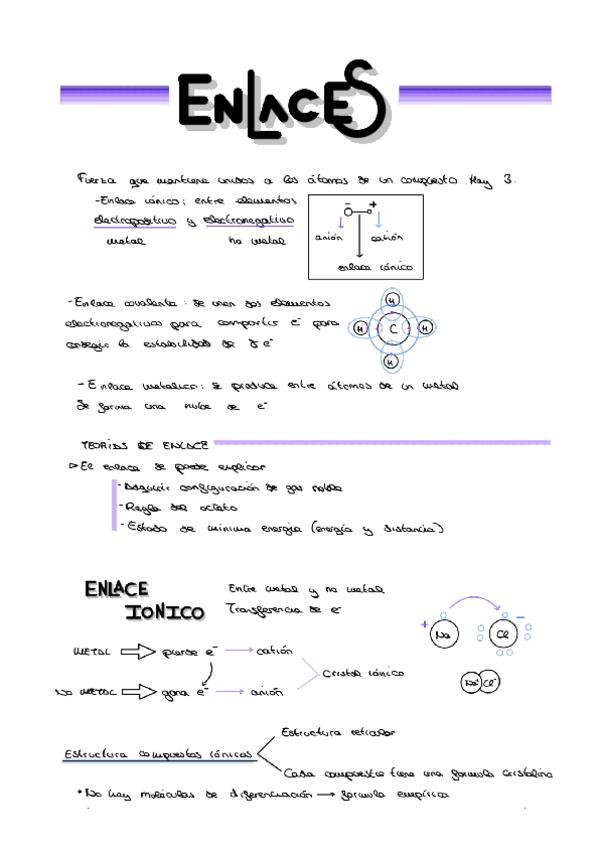 ENLACES
Fuerza que mantiene unidos a los átomos de un compuesto. Hay 3.
-Enlace iónico: entre elementos
electropositivo y electronegativo
metal no metal
- +
anión catión
enlace iónico
-Enlace covalente: se unen dos elementos
electronegativos para compartir e⁻ para
conseguir la estabilidad de 8 e⁻
H
H C H
H
-Enlace metalico: se produce entre átomos de un metal
Se forma una nube de e⁻
TEORIAS DE ENLACE
▷El enlace se puede explicar
-Adquirir configuración de gas noble
-Regla del octeto
-Estado de mínima energia (energía y distancia)
ENLACE
IONICO
Entre metal y no metal
Transferencia de e⁻
+ Na Cl -
METAL ⇒ pierde e⁻ → catión
Cristal iónico
NO METAL ⇒ gana e⁻ → anión
Na⁺ Cl⁻
Estructura reticular
Estructura compuestos iónicos
Cada compuesto tiene una formula cristalina
*No hay moléculas de diferenciación → formula empírica